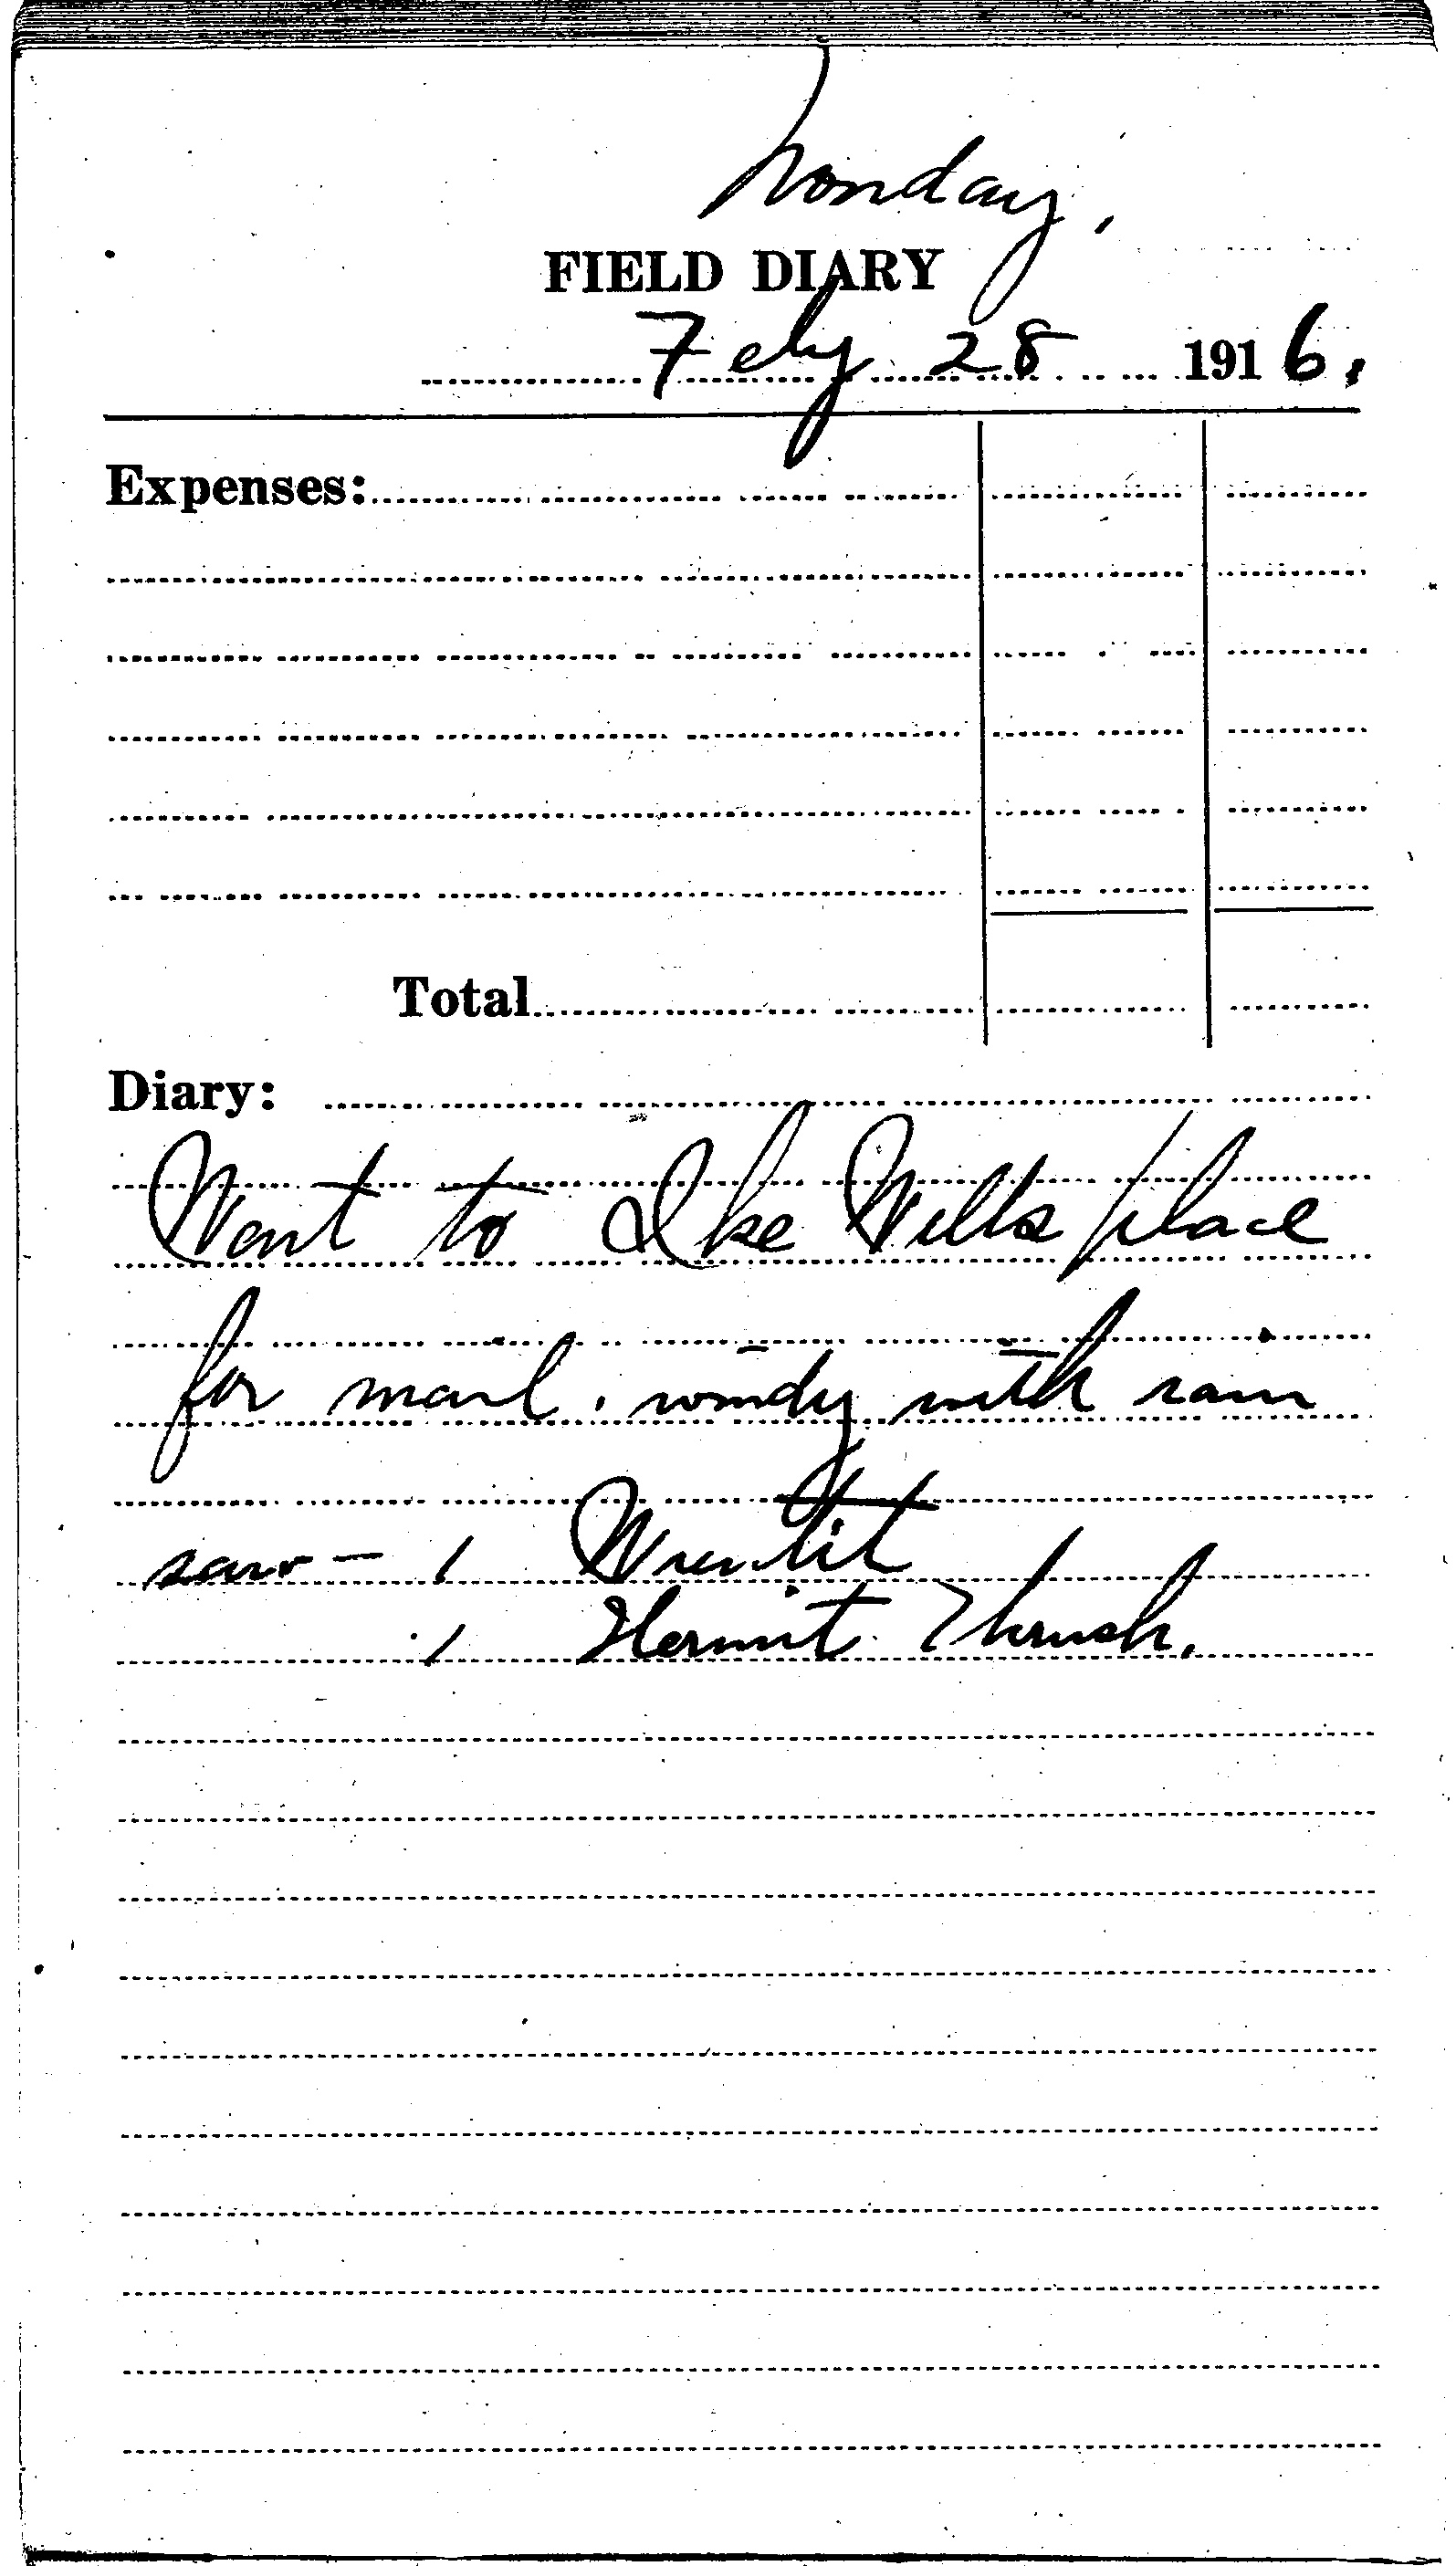 Monday,
FIELD DIARY
Feby 28 1916.
Expenses:
Total
Diary:
Went to Ike Wills place
for mail. windy with rain
saw - 1 Wrentit
1 Hermit Thrush.